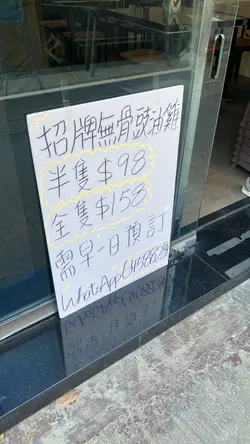 招牌無骨豉油雞
半隻$98
全隻$153
需早一日預訂
WhatsApp